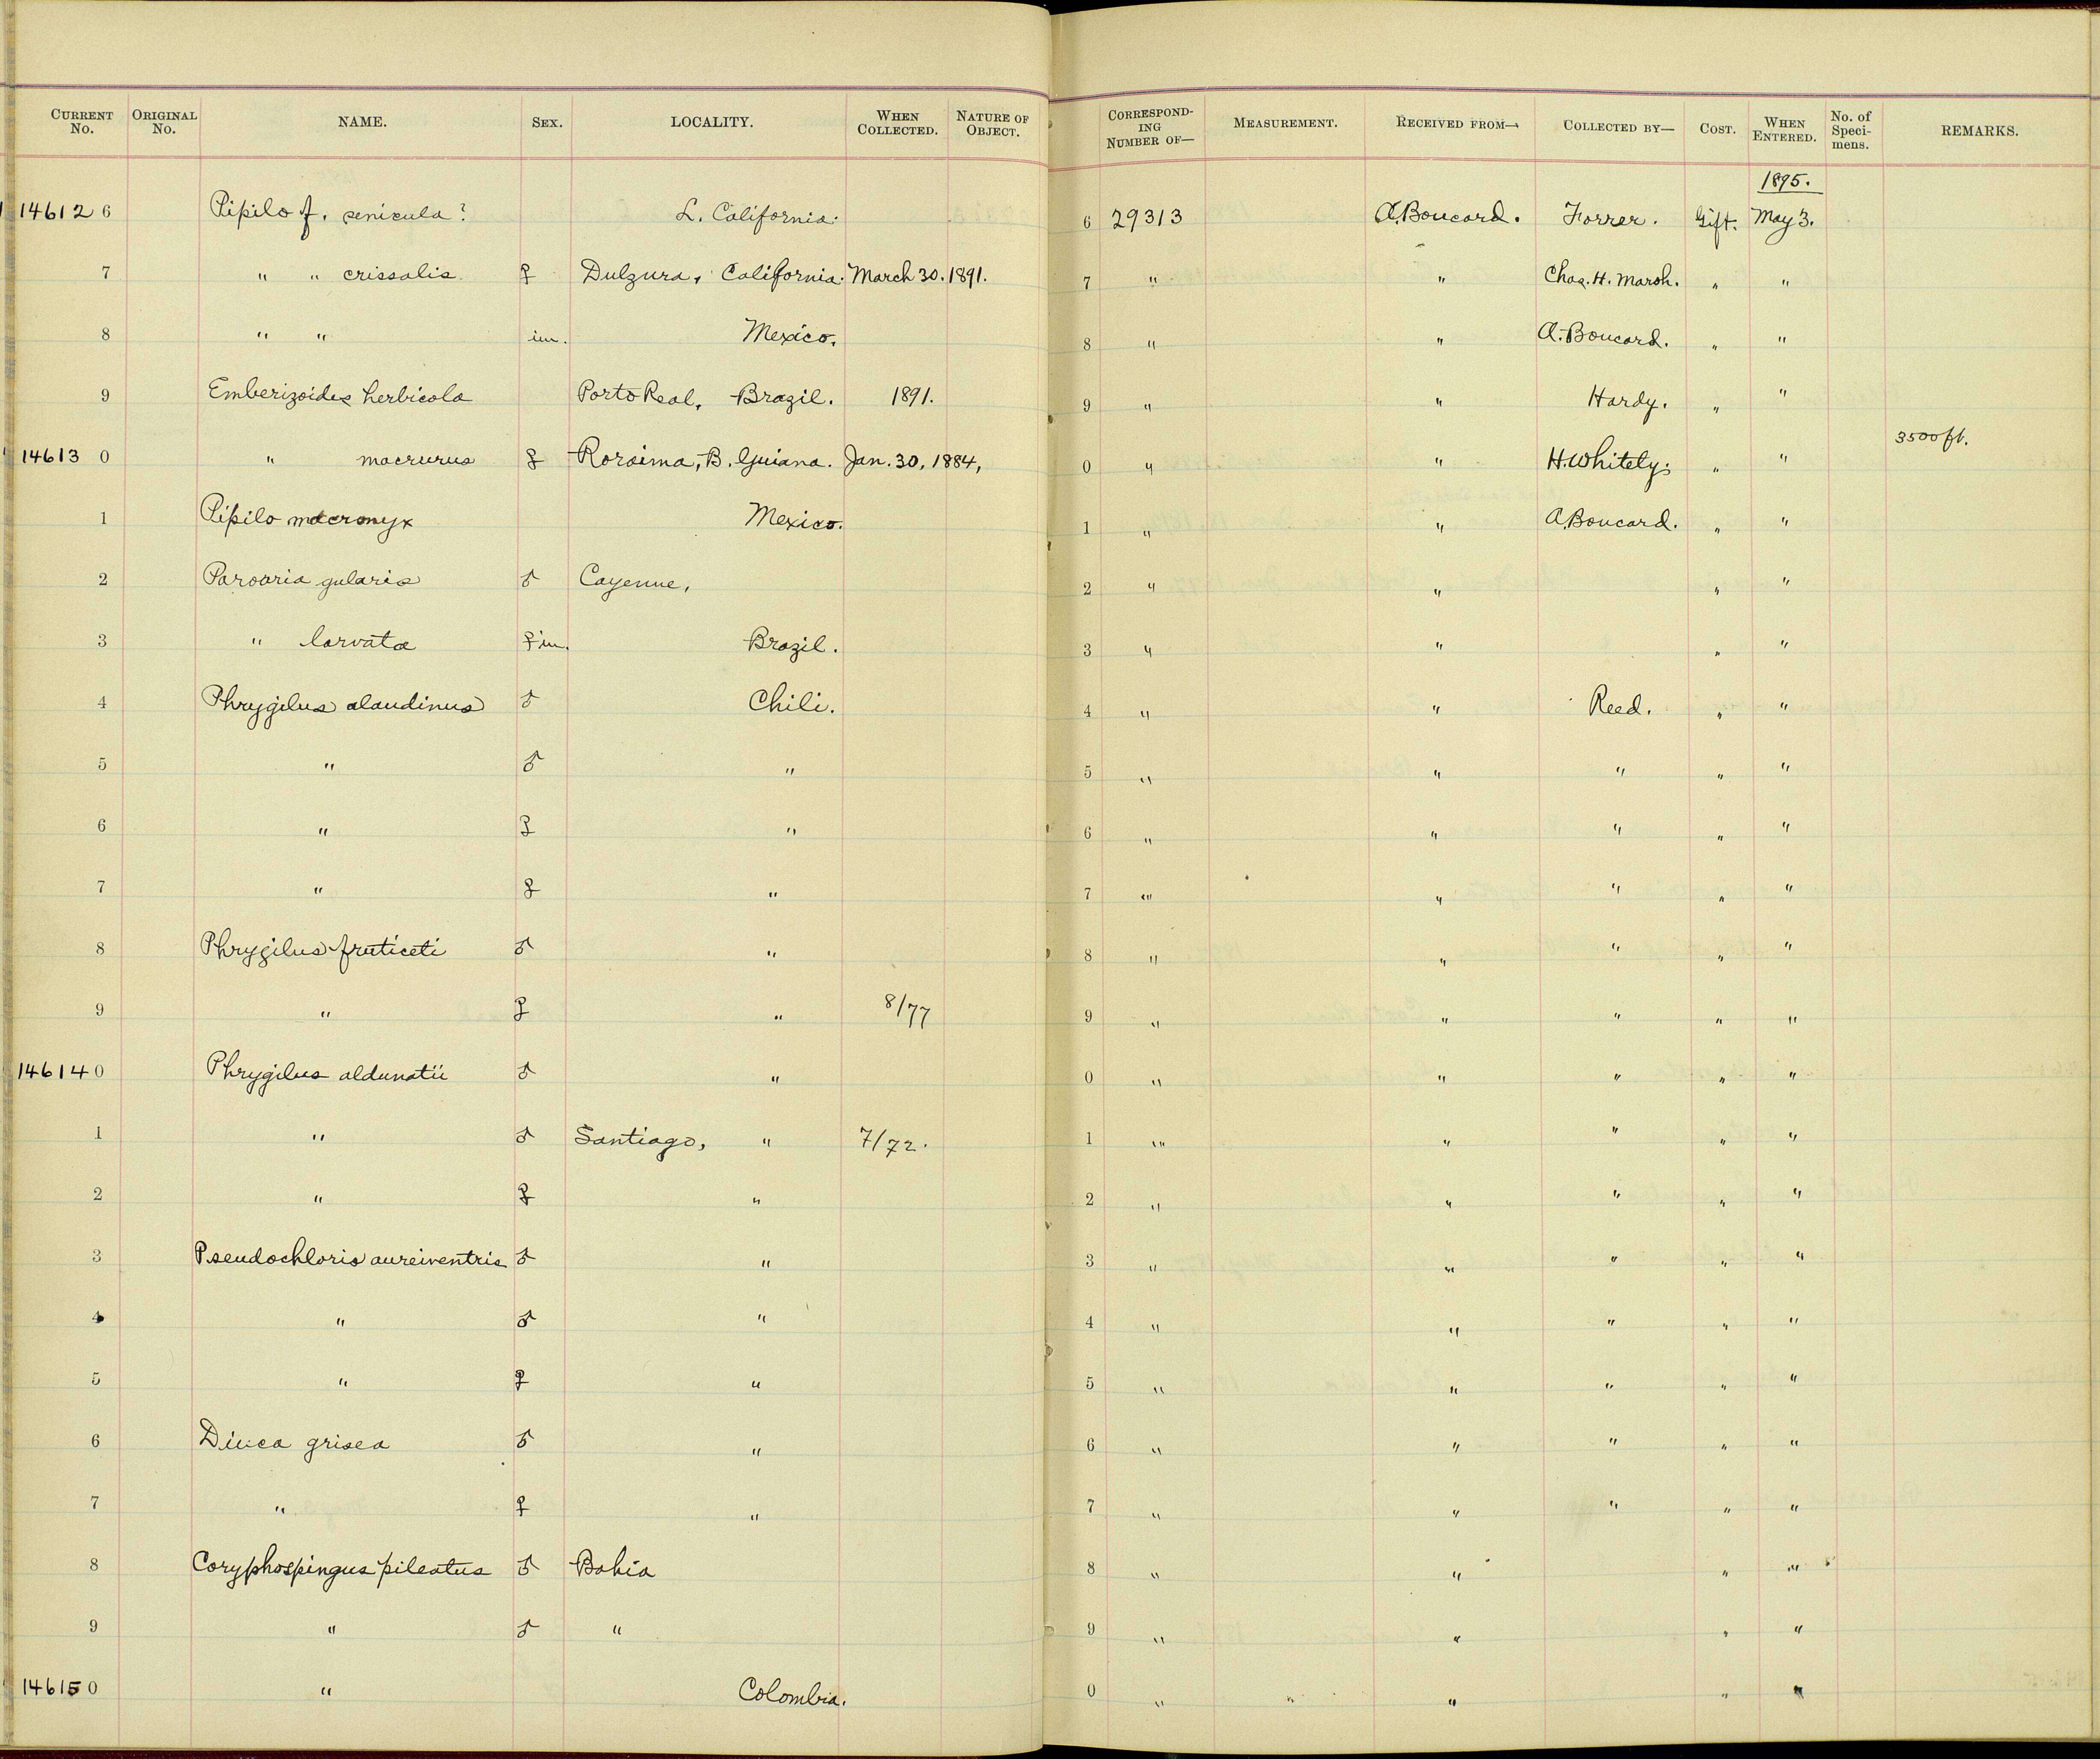 CURRENT No. ORIGINAL No. NAME. SEX. LOCALITY. WHEN COLLECTED. NATURE OF OBJECT. CORRESPONDING NUMBER OF— MEASUREMENT. RECEIVED FROM— COLLECTED BY— COST. WHEN ENTERED. No. of Specimens. REMARKS.
1895.
14612 6 Pipilo f. senicula? L. California. 6 29313 A. Boucard. Forrer. Gift. May 3.
7 " " crissalis ♀ Dulzura, California. March 30. 1891. 7 " " Chas. H. Marsh. " "
8 " " im. Mexico. 8 " " A. Boucard. " "
9 Emberizoides herbicola Porto Real, Brazil. 1891. 9 " " Hardy. " "
14613 0 " macrurus ♀ Roraima, B. Guiana. Jan. 30, 1884, 0 " " H. Whitely. " " 3500 ft.
1 Pipilo macronyx Mexico. 1 " " A. Boucard. " "
2 Paroaria gularis ♂ Cayenne, 2 " " " "
3 " larvata ♀ im. Brazil. 3 " " " "
4 Phrygilus alaudinus ♂ Chili. 4 " " Reed. " "
5 " ♂ " 5 " " " " "
6 " ♀ " 6 " " " " "
7 " ♀ " 7 " " " " "
8 Phrygilus fruticeti ♂ " 8 " " " " "
9 " ♀ " 8/77 9 " " " " "
14614 0 Phrygilus aldunatii ♂ " 0 " " " " "
1 " ♂ Santiago, " 7/72. 1 " " " " "
2 " ♀ " 2 " " " " "
3 Pseudochloris aureiventris ♂ " 3 " " " " "
4 " ♂ " 4 " " " " "
5 " ♀ " 5 " " " " "
6 Diuca grisea ♂ " 6 " " " " "
7 " ♀ " 7 " " " " "
8 Coryphospingus pileatus ♂ Bahia 8 " " " "
9 " ♂ " 9 " " " "
14615 0 " Colombia. 0 " " " " "